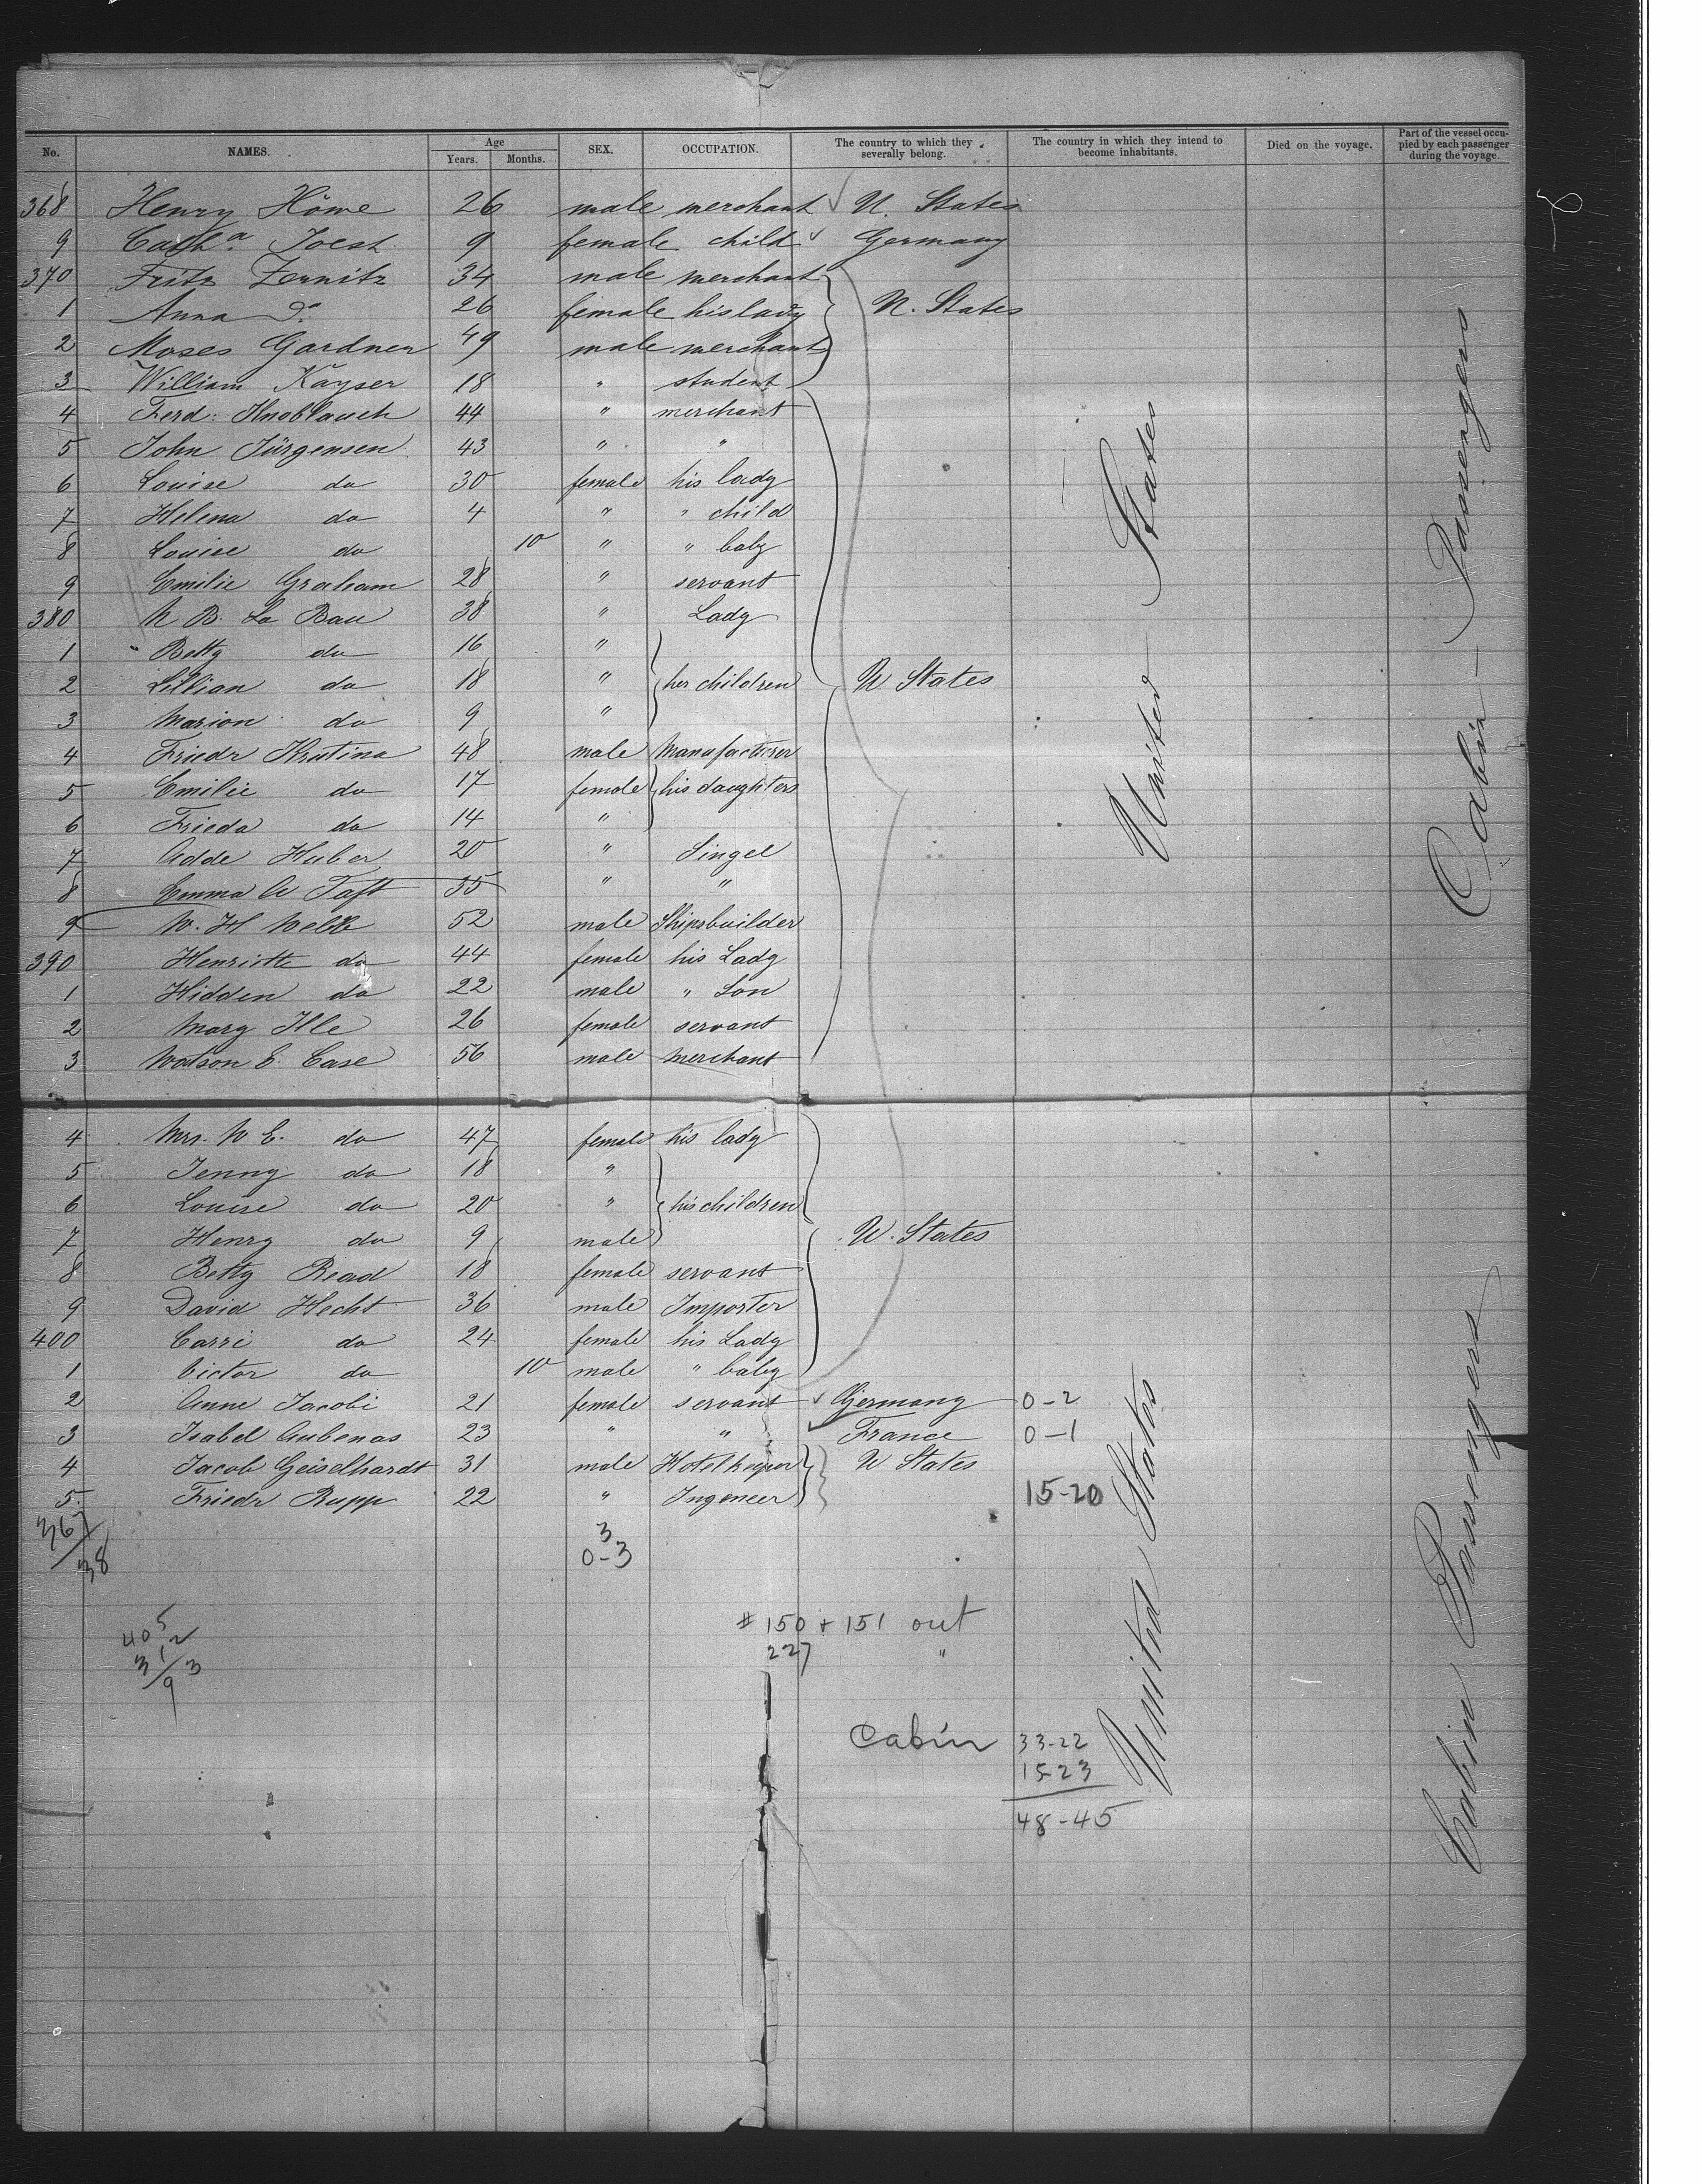 No. NAMES. Age Years. Months. SEX. OCCUPATION. The country to which they severally belong. The country in which they intend to become inhabitants. Died on the voyage. Part of the vessel occupied by each passenger during the voyage.
368 Henry Höwe 26 male merchant U. States
9 Cath.a Joest 9 female child Germany
370 Fritz Zernitz 34 male merchant
1 Anna Do 26 female his lady U. States
2 Moses Gardner 49 male merchant
3 William Kayser 18 " student
4 Ferd: Knoblauch 44 " merchant
5 John Jürgensen 43 " "
6 Louise do 30 female his lady
7 Helena do 4 " " child
8 Louise do 10 " " baby
9 Emilie Graham 28 " servant
380 M B. La Bau 38 " Lady
1 " Betty do 16 "
2 Lillian do 18 " her children U States
3 Marion do 9 "
4 Friedr Krutina 48 male Manufacturer
5 Emilie do 17 female his daughters
6 Frieda do 14 "
7 Adde Huber 20 " Singel
8 Emma A Taft 35 " "
9 W. H Webb 52 male Shipsbuilder
390 Henriette do 44 female his Lady
1 Hidden do 22 male " Son
2 Mary Ille 26 female servant
3 Watson E. Case 56 male merchant
4 Mrs. W E. do 47 female his lady
5 Jenny do 18 "
6 Louise do 20 " his children
7 Henry do 9 male U. States
8 Betty Read 18 female servant
9 David Hecht 36 male Importer
400 Carri do 24 female his Lady
1 Victor do 10 male " baby
2 Anne Jacobi 21 female servant Germany 0-2
3 Isabel Aubenas 23 " " France 0-1
4 Jacob Geiselhardt 31 male Hotelkeeper U States
5. Friedr Rupp 22 " Ingeneer 15-20
367
38
3
0-3
405
312
93
# 150 + 151 out
227 "
Cabin 33-22
15-23
48-45
United States
United States
Cabin - Passengers
Cabin Passengers
8